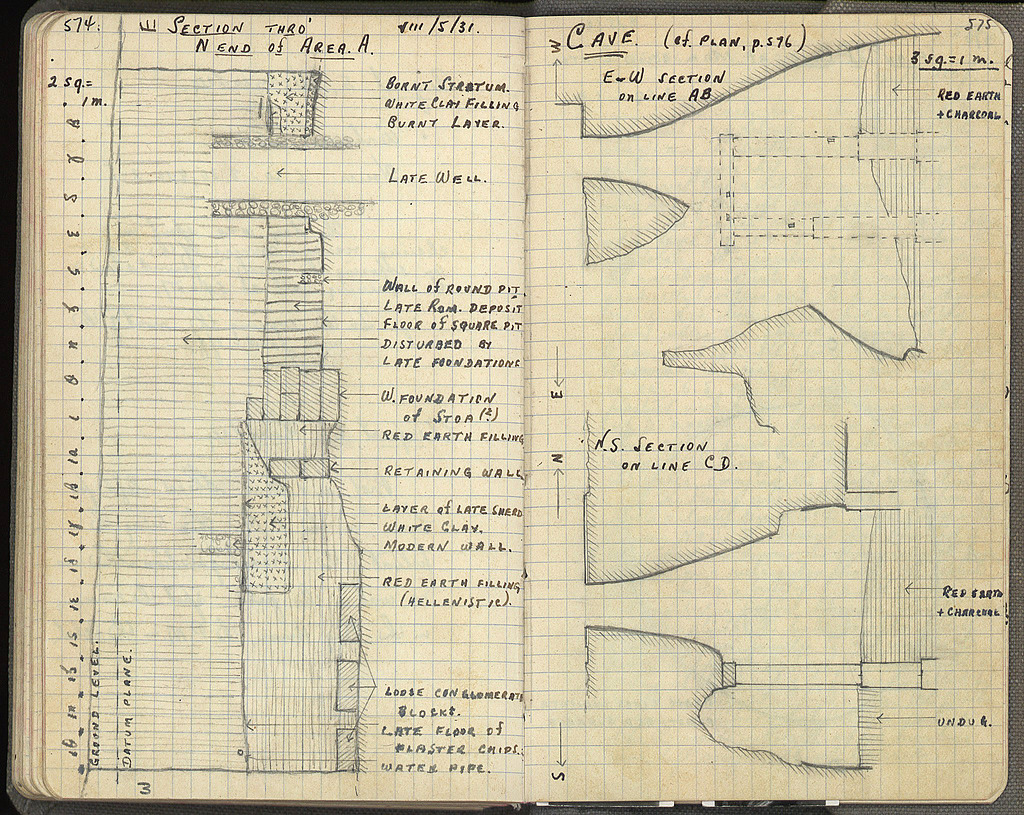 574.
E SECTION THRO'
N END of AREA. A.
VIII/5/31.
2 SQ. =
1 m.
BURNT STRATUM.
WHITE CLAY FILLING
BURNT LAYER.
LATE WELL.
WALL of ROUND PIT
LATE ROM. DEPOSIT
FLOOR of SQUARE PIT
DISTURBED BY
LATE FOUNDATIONS
W. FOUNDATION
of STOA (?)
RED EARTH FILLING
RETAINING WALL
LAYER of LATE SHERD
WHITE CLAY.
MODERN WALL.
RED EARTH FILLING
(HELLENISTIC).
LOOSE CONGLOMERATE
BLOCKS.
LATE FLOOR of
PLASTER CHIPS.
WATER PIPE.
GROUND LEVEL.
DATUM PLANE.
3
575
CAVE. (cf. PLAN, p. 576)
3 SQ. = 1 m.
W
E-W SECTION
ON LINE AB
RED EARTH
+ CHARCOAL
E
N
N.S. SECTION
ON LINE CD.
RED EARTH
+ CHARCOAL
UNDUG.
S